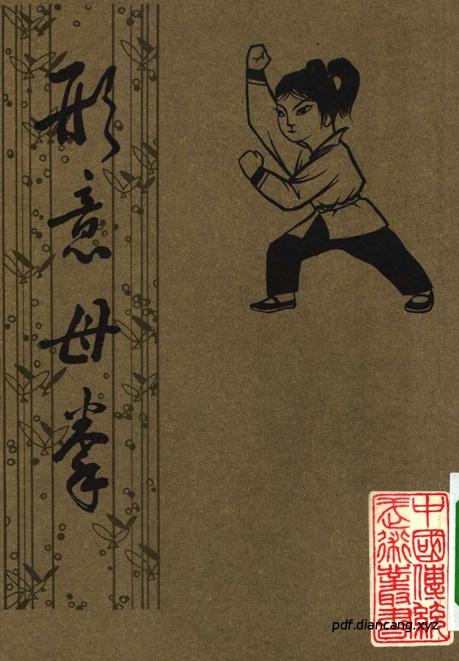 形意母拳
中國傳統
武術叢書
pdf.diancang.xyz